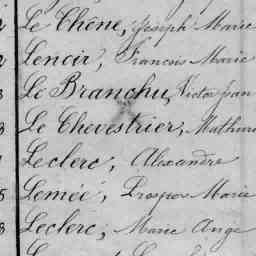 Le Chêne, Joseph Marie
Lenoir, François Marie
Le Branchu, Victor Jean
Le Chevestrier, Mathurin
Leclerc, Alexandre
Lemée, Prosper Marie
Leclerc, Marie Ange